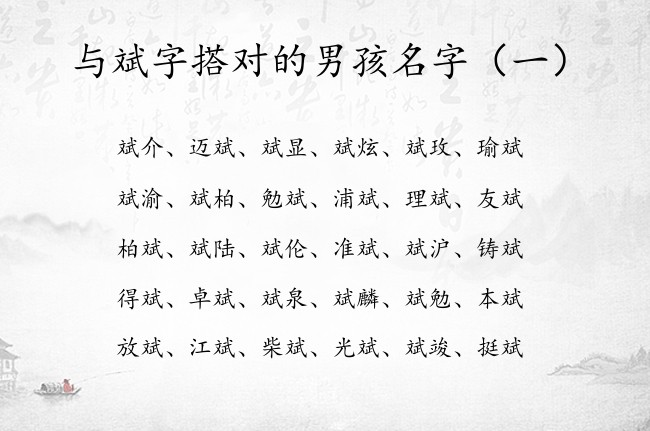 与斌字搭对的男孩名字（一）
斌介、迈斌、斌显、斌炫、斌玫、瑜斌
斌渝、斌柏、勉斌、浦斌、理斌、友斌
柏斌、斌陆、斌伦、准斌、斌沪、铸斌
得斌、卓斌、斌泉、斌麟、斌勉、本斌
放斌、江斌、柴斌、光斌、斌竣、挺斌